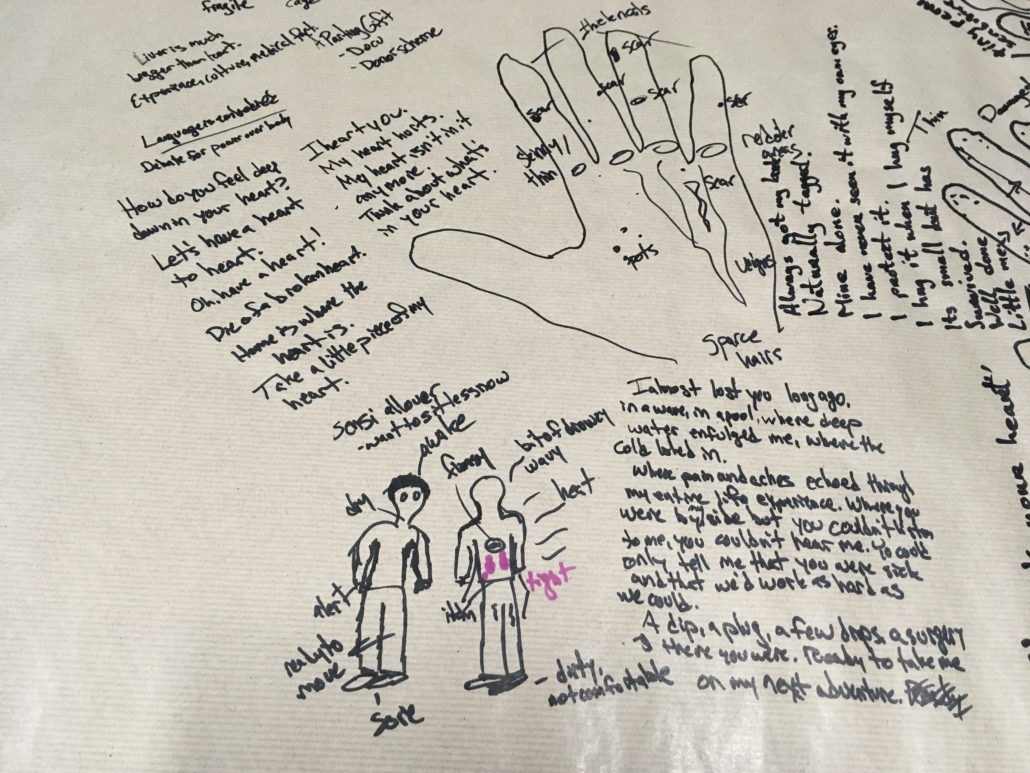 fragile
cage
Liver is much
bigger than heart.
Experience, culture, medical Pat.
+ Parting Gift
- Docu
- Donor scheme
Language is embodied
Debate for power over body
How do you feel deep
down in your heart?
Let's have a heart
to heart.
Oh, have a heart!
Die of a broken heart.
Home is where the
heart is.
Take a little piece of my
heart.
I heart you.
My heart hurts.
My heart isn't in it
anymore.
Think about what's
in your heart.
thick nails
scar
scar
scar
scar
scar
scar
skinny/
thin
redder
scar
spots
veiny
sparce
hairs
Always got my back
Naturally tagged.
Mine alone.
I have never seen it with my own eyes.
I protect it. I hug myself
I hug it when I
Its small but has
Survived.
Well done
Little mess
Thin
tiny
your heart'
sensi all over
- want to sit less now
awake
dry
alert
ready to
move
sore
firm
bit of browny
wavy
heat
tight
itchin
dirty,
not comfortable
I almost lost you long ago,
in a wave, in a pool, where deep
water enfulged me, where the
cold in.
where pain and aches echoed through
my entire life experience. Where you
were by side but you couldn't listen
to me, you couldn't hear me. Yo could
only tell me that you were sick
and that we'd work as hard as
we could.
A dip, a plug, a few drips, a surgery
& there you were. Ready to take me
on my next adventure.